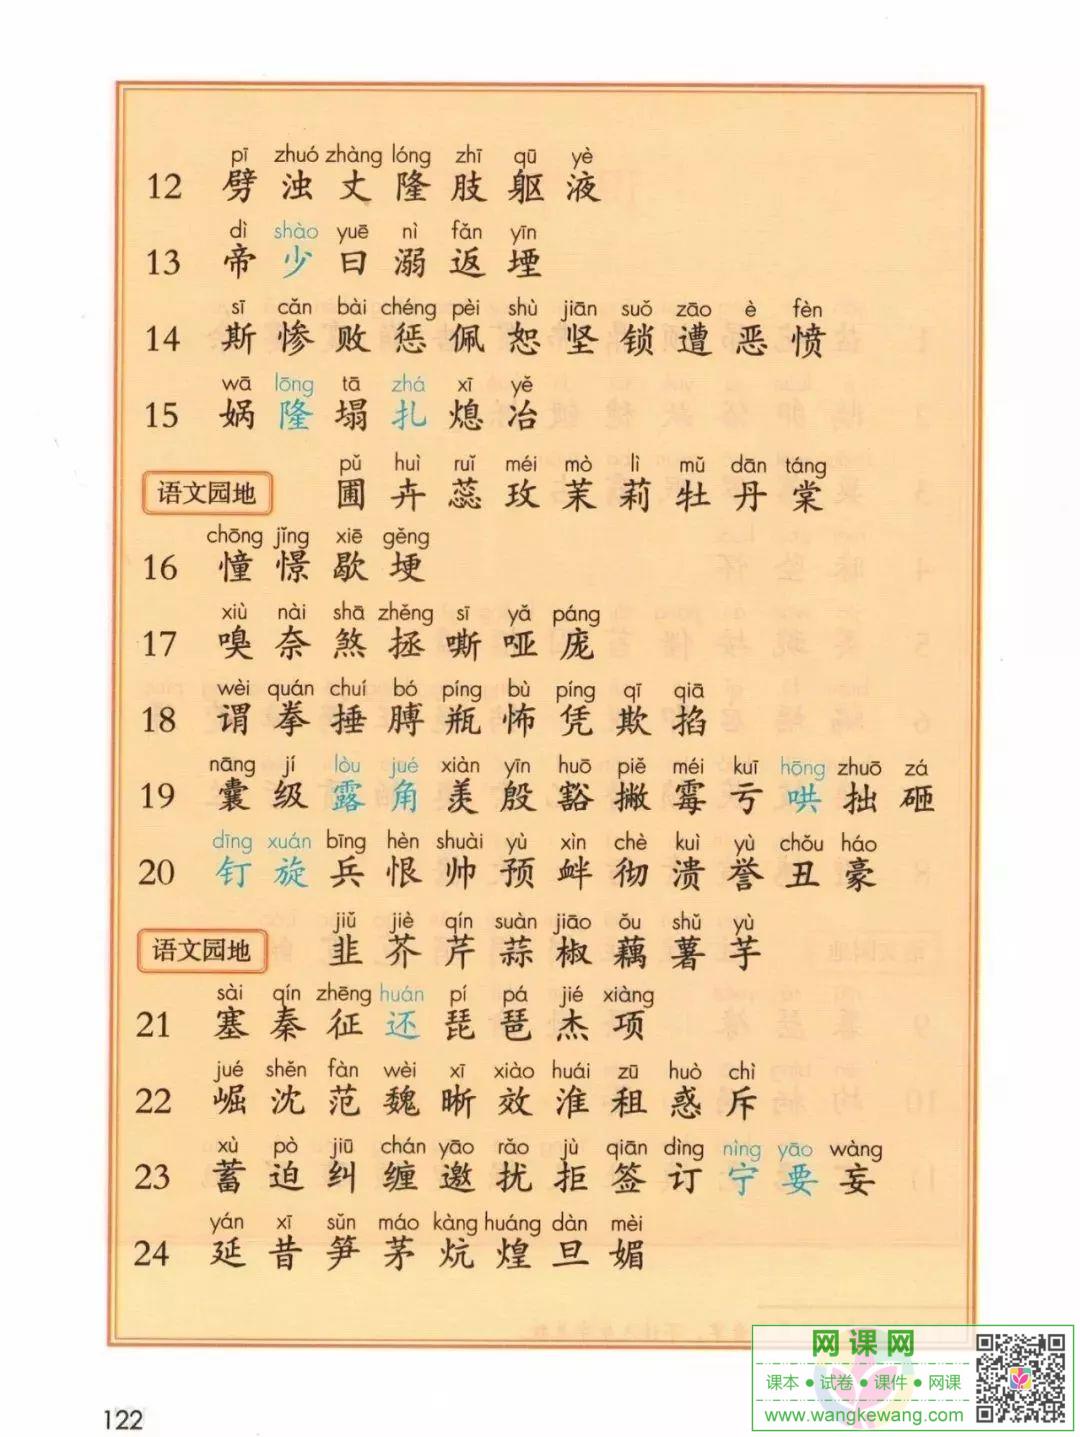 pī zhuó zhàng lóng zhī qū yè
12 劈 浊 丈 隆 肢 躯 液
dì shào yuē nì fǎn yīn
13 帝 少 曰 溺 返 堙
sī cǎn bài chéng pèi shù jiān suǒ zāo è fèn
14 斯 惨 败 惩 佩 恕 坚 锁 遭 恶 愤
wā lōng tā zhá xī yě
15 娲 隆 塌 扎 熄 冶
pǔ huì ruǐ méi mò lì mǔ dān táng
语文园地 圃 卉 蕊 玫 茉 莉 牡 丹 棠
chōng jǐng xiē gěng
16 憧 憬 歇 埂
xiù nài shā zhěng sī yǎ páng
17 嗅 奈 煞 拯 嘶 哑 庞
wèi quán chuí bó píng bù píng qī qiā
18 谓 拳 捶 膊 瓶 怖 凭 欺 掐
nāng jí lòu jué xiàn yīn huō piě méi kuī hōng zhuō zá
19 囊 级 露 角 羡 殷 豁 撇 霉 亏 哄 拙 砸
dīng xuán bīng hèn shuài yù xìn chè kuì yù chǒu háo
20 钉 旋 兵 恨 帅 预 衅 彻 溃 誉 丑 豪
jiǔ jiè qín suàn jiāo ǒu shǔ yù
语文园地 韭 芥 芹 蒜 椒 藕 薯 芋
sài qín zhēng huán pí pá jié xiàng
21 塞 秦 征 还 琵 琶 杰 项
jué shěn fàn wèi xī xiào huái zū huò chì
22 崛 沈 范 魏 晰 效 淮 租 惑 斥
xù pò jiū chán yāo rǎo jù qiān dìng nìng yāo wàng
23 蓄 迫 纠 缠 邀 扰 拒 签 订 宁 要 妄
yán xī sǔn máo kàng huáng dàn mèi
24 延 昔 笋 茅 炕 煌 旦 媚
网课网
课本●试卷●课件●网课
www.wangkewang.com
122